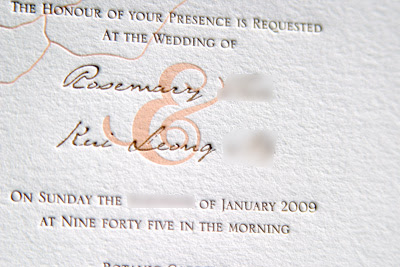 The Honour of your Presence is Requested
At the Wedding of
Rosemary
&
Rui Leong
On Sunday the of January 2009
at Nine forty five in the morning